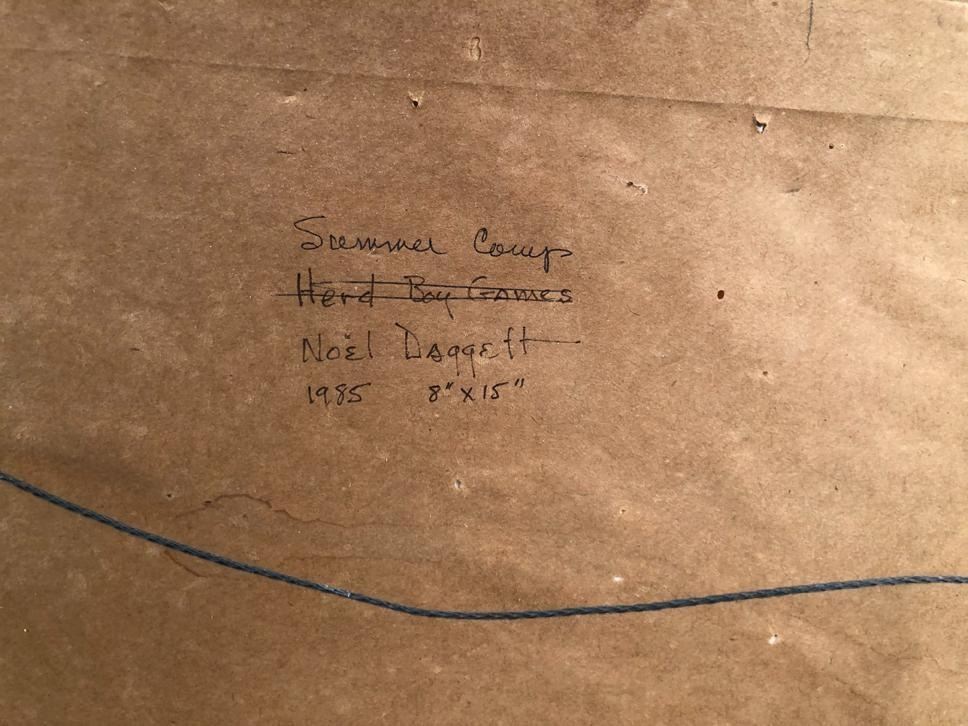 Summer Camp
Herd Boy Games
Noël Daggett
1985 8" x 15"